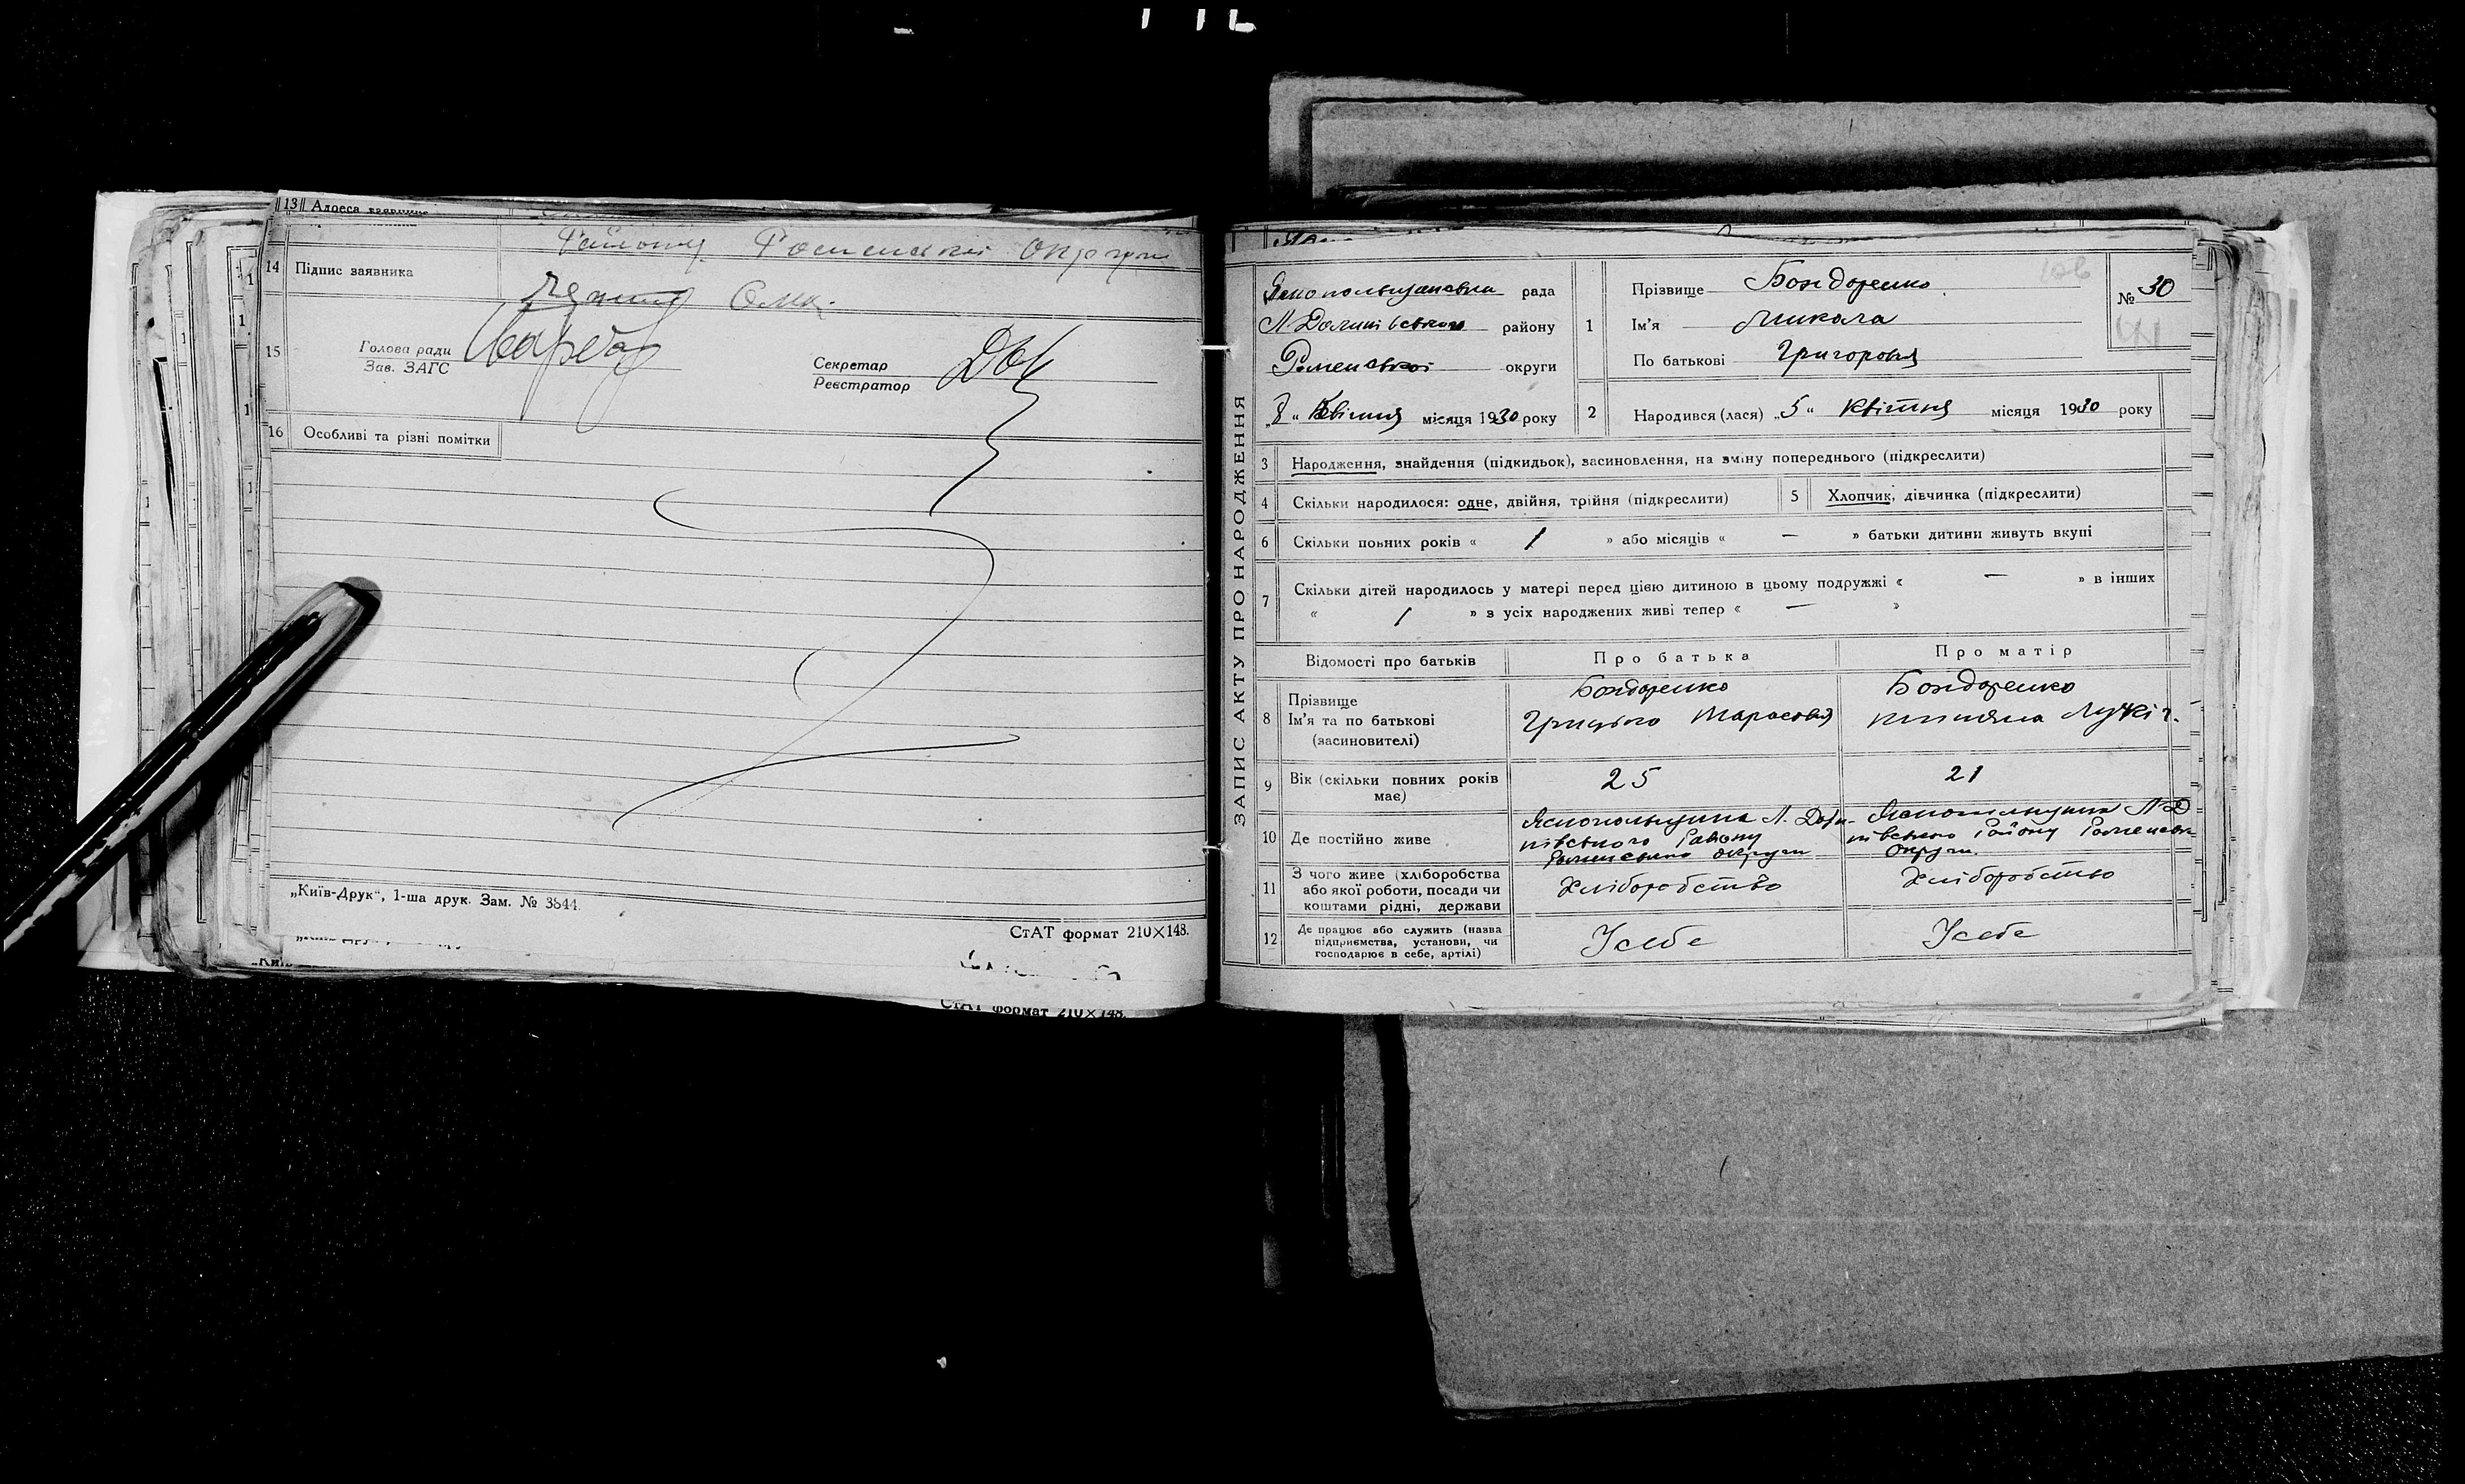 13 Адреса заявника
Району Роменської Округи
14 Підпис заявника
15 Голова ради
Зав. ЗАГС
Секретар
Реєстратор
16 Особливі та різні помітки
„Київ-Друк“, 1-ша друк. Зам. № 3844.
СтАТ формат 210×148.
СтАТ формат 210×148.
ЗАПИС АКТУ ПРО НАРОДЖЕННЯ
рада
Л-Долинівського району
Роменської округи
„8“ Квітня місяця 1930 року
1 Прізвище Бондаренко
Ім'я Микола
По батькові Григоров.
№ 30
2 Народився (лася) „5“ Квітня місяця 1930 року
3 Народження, знайдення (підкидьок), засиновлення, на зміну попереднього (підкреслити)
4 Скільки народилося: одне, двійня, трійня (підкреслити)
5 Хлопчик, дівчинка (підкреслити)
6 Скільки повних років « 1 » або місяців « — » батьки дитини живуть вкупі
7 Скільки дітей народилось у матері перед цією дитиною в цьому подружжі « — » в інших
« / » з усіх народжених живі тепер « — »
Відомості про батьків Про батька Про матір
8 Прізвище
Ім'я та по батькові
(засиновителі)
Бондаренко
Грицько Тарасов.
Бондаренко
9 Вік (скільки повних років
має)
25
21
10 Де постійно живе
Яснопольщина Л. Доли-
нівського Району
Роменської округи
Яснопольщина Л-До
нівського Району Роменськ
округи.
11 З чого живе (хліборобства
або якої роботи, посади чи
коштами рідні, держави
Хліборобство
Хліборобство
12 Де працює або служить (назва
підприємства, установи, чи
господарює в себе, артілі)
У себе
У себе